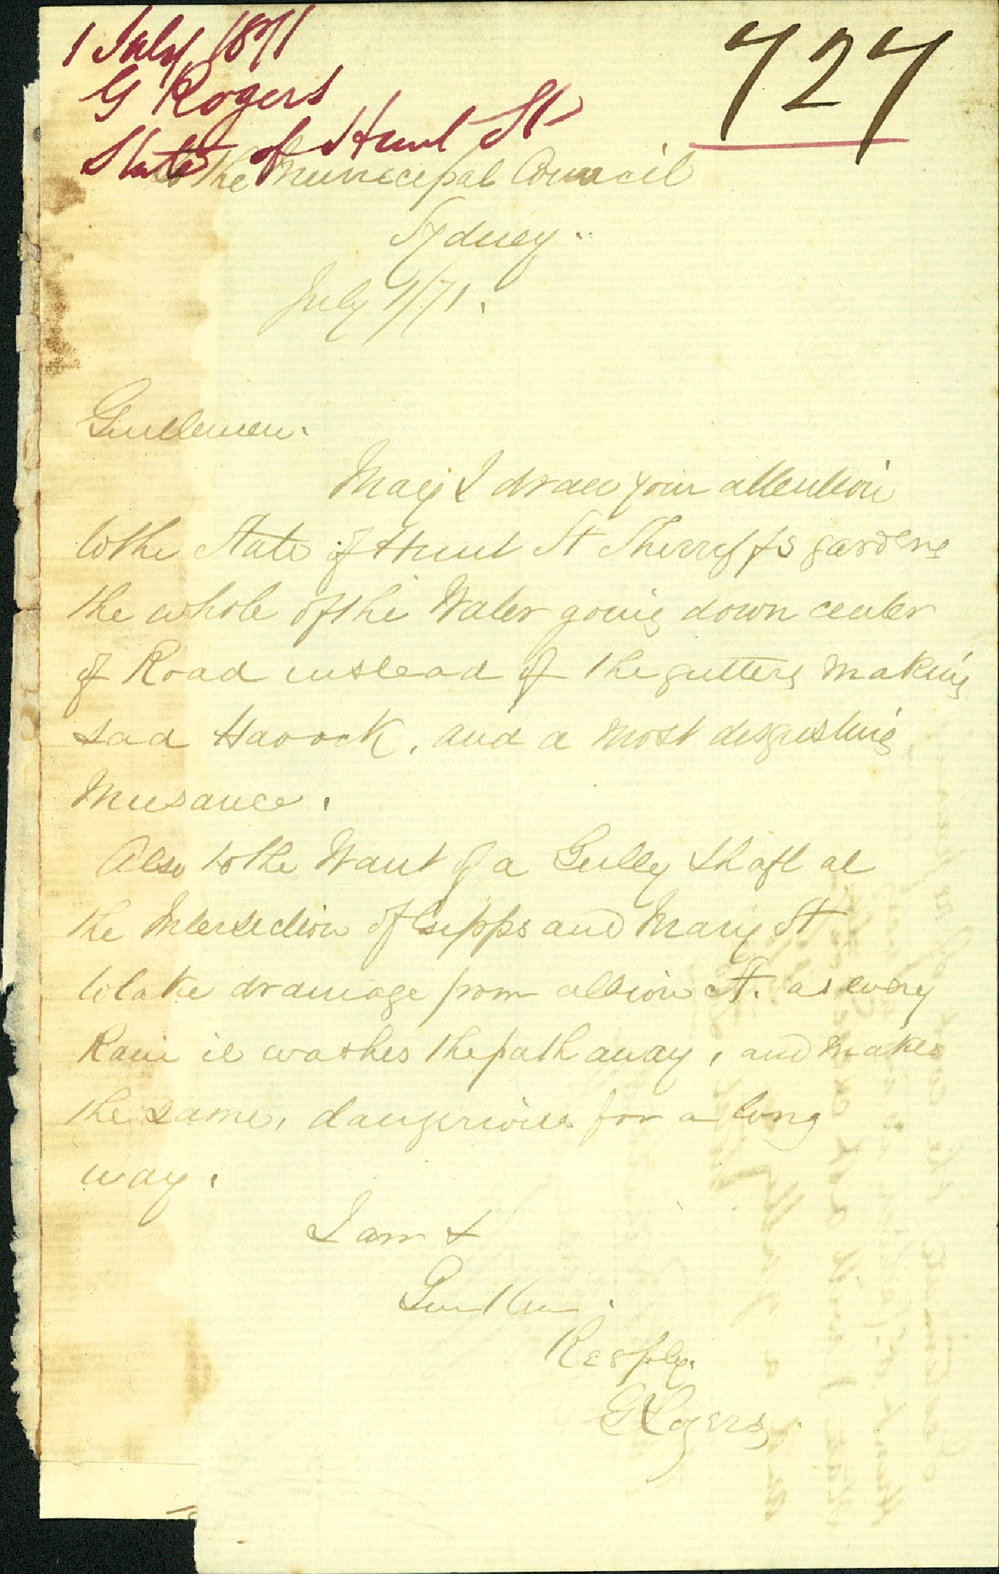 1 July 1871
727
G Rogers
State of Hunt St
To the Municipal Council
Sydney.
July 1/71.
Gentlemen.
May I draw your attention
to the State of Hunt St Sherriffs gardens
the whole of the Water going down center
of Road instead of the gutters making
sad Havock, and a most disgusting
Nuisance.
Also to the Want of a Gully Shaft at
the Intersection of Gipps and Mary St
to take drainage from albion St. as every
Rain it washes the path away, and makes
the same, dangerious for a long
way.
I am &
Gentlemen.
Respfly.
G Rogers.